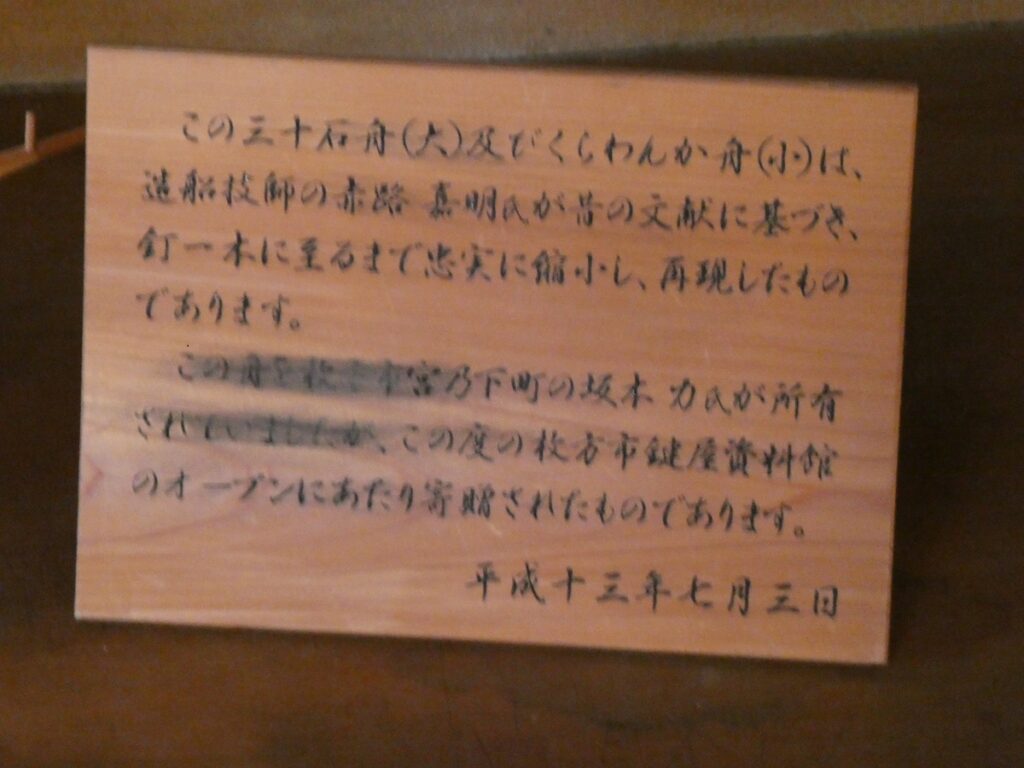 この三十石舟(大)及びくらわんか舟(小)は、
造船技師の赤路 嘉明氏が昔の文献に基づき、
釘一本に至るまで忠実に縮小し、再現したもの
であります。
この舟を枚方市宮乃下町の坂本 力氏が所有
されていましたが、この度の枚方市鍵屋資料館
のオープンにあたり寄贈されたものであります。
平成十三年七月三日